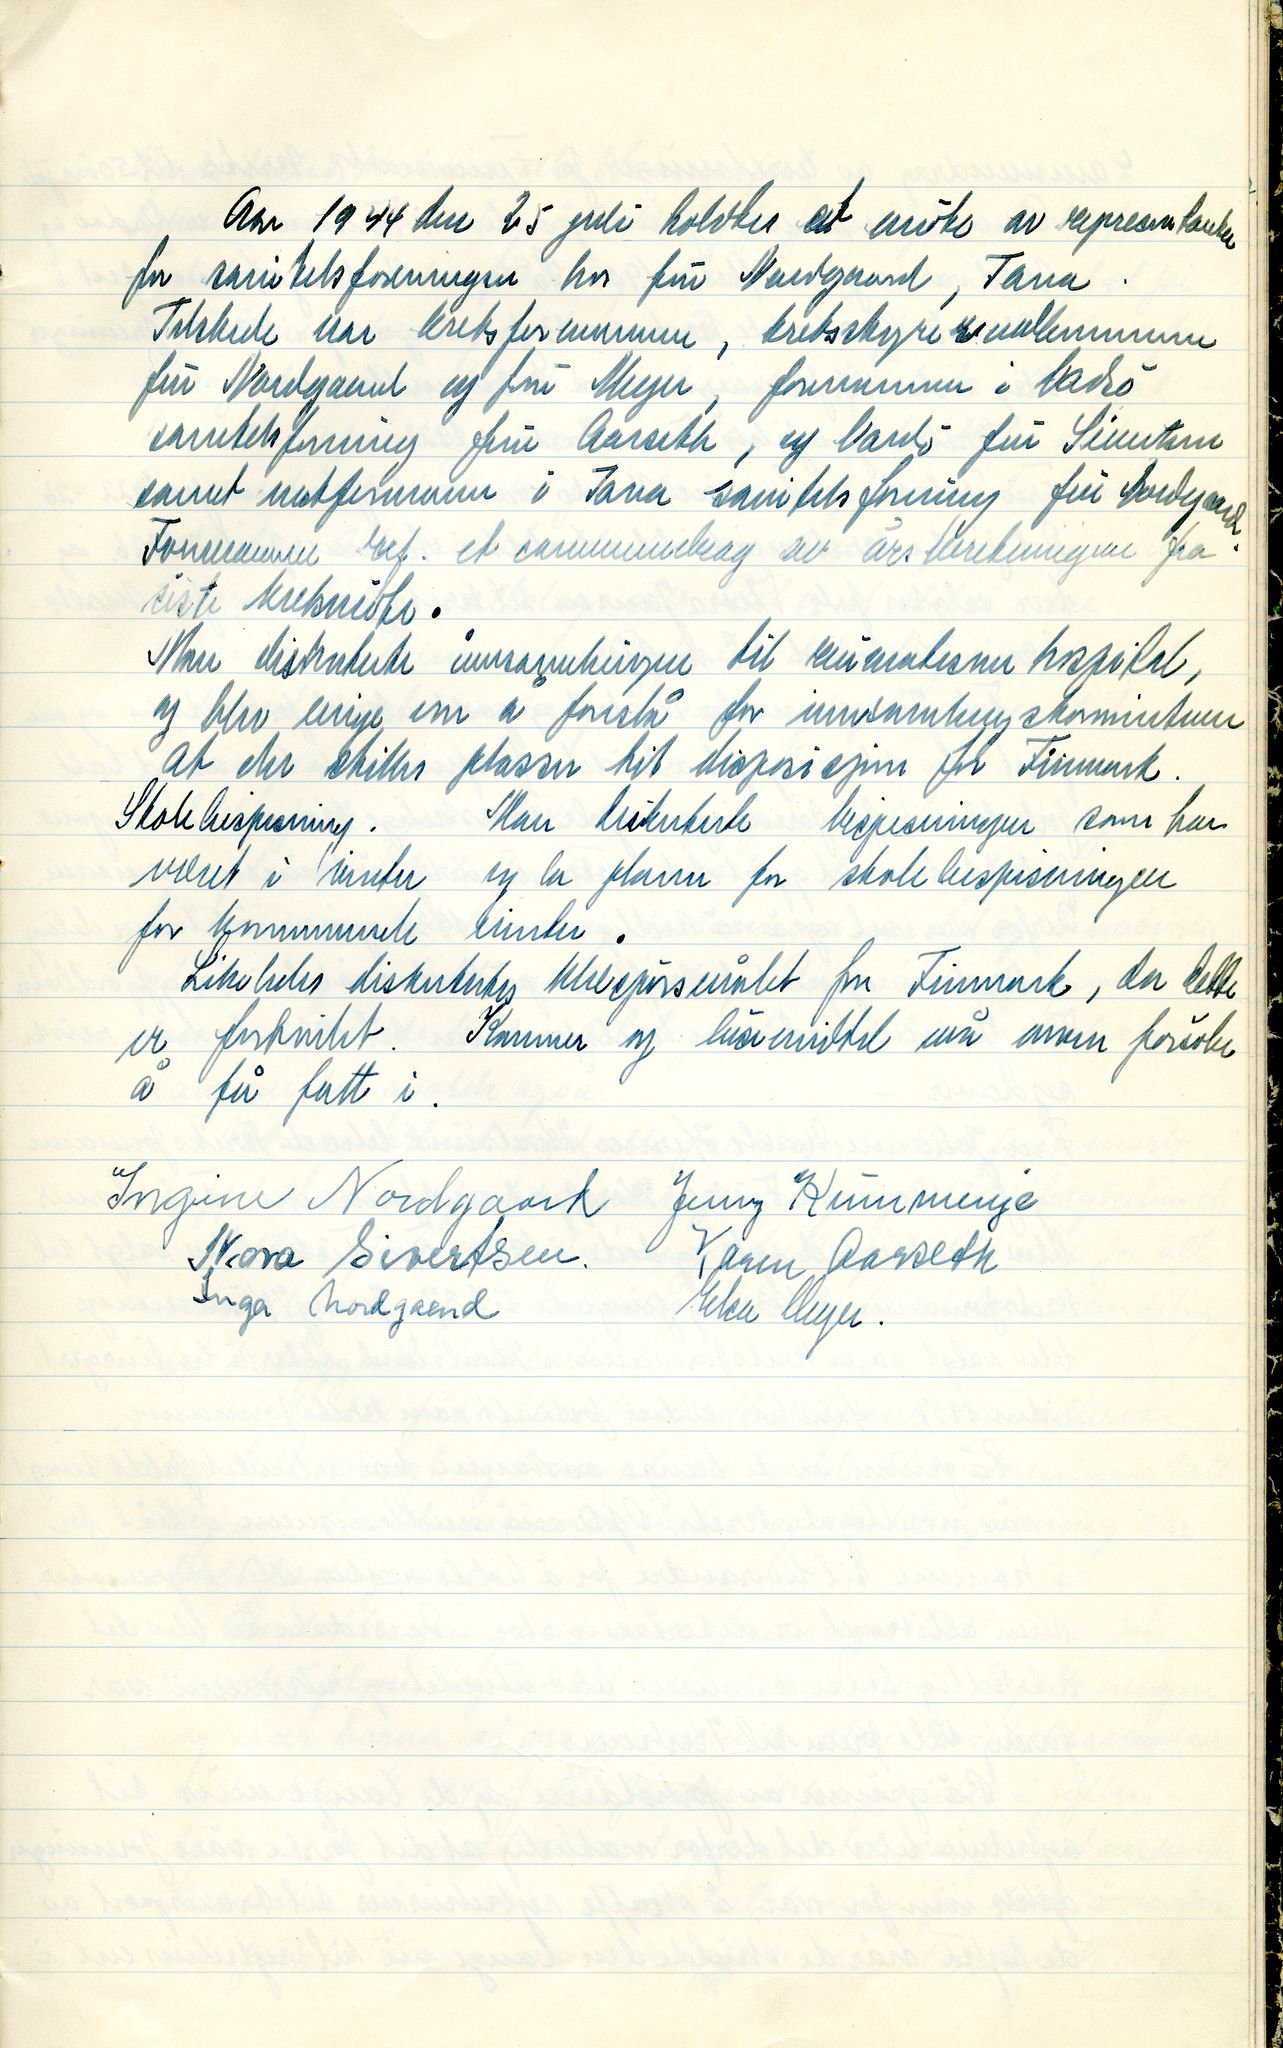 Aar 1944 den 25 juli holdtes et möte av representanter
for sanitetsforeningen hos frü Nordgaard, Tana.
Tilstede var kretsformannen, kretsstyremedlemmene
frü Nordgaard og frü Meyer, formannen i Vadsö
sanitetsforning frü Aarseth, og Vardö frü Sivertsen
samt nestformann i Tana sanitetsforning frü Nordgaard.
Formannen ref. et sammendrag av årsberetningene fra
siste kretsmöte.
Man diskuterte innsamlingen til reümatismehospital,
og blev enige om å foreslå for innsamlingskomiteen
at der stilles plasser til disposisjon for Finmark.
Skolebespisning. Man diskuterte bespisningen som har
været i vinter og la planer for skolebespisningen
for kommende vinter.
Likeledes diskutertes klespörsmålet for Finmark, da dette
er fortvilet. Kammer og lüsemiddel må man forsöke
å få fatt i.
Ingine Nordgaard Jenny Kümmenje
Nora Sivertsen. Karen Aarseth
Inga Nordgaard Elsa Meyer.